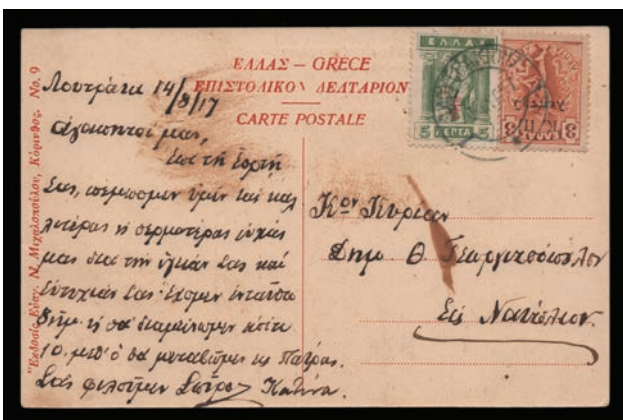 ΕΛΛΑΣ – GRECE
ΕΠΙΣΤΟΛΙΚΟΝ ΔΕΛΤΑΡΙΟΝ
CARTE POSTALE
Ἔκδοσις Εὐαγ. Ν. Μιχαλοπούλου, Κόρινθος. No. 9
ΕΛΛΑΣ
5 ΛΕΠΤΑ 5
ΕΛΛΑΣ
3 3
Λουτράκι 14/8/17
Ἀγαπητοί μας,
Ἐπὶ τῇ ἑορτῇ
Σας, πέμπομεν ὑμῖν τὰς καλ
λιτέρας θερμοτέρας εὐχάς
μας διὰ τὴν ὑγείαν Σας καὶ
εὐτυχίαν Σας Ἔχομεν ἐνταῦθα
θὰ διαμείνωμεν
10. μεθ' ὃ θὰ μεταβῶμεν εἰς Πάτρας.
Σᾶς φιλοῦμεν Σωτρος Κατίνα.
Κον Κυρίαν
Δημ Θ. Γεωργιτσόπουλον
Εἰς Ναύπλιον.